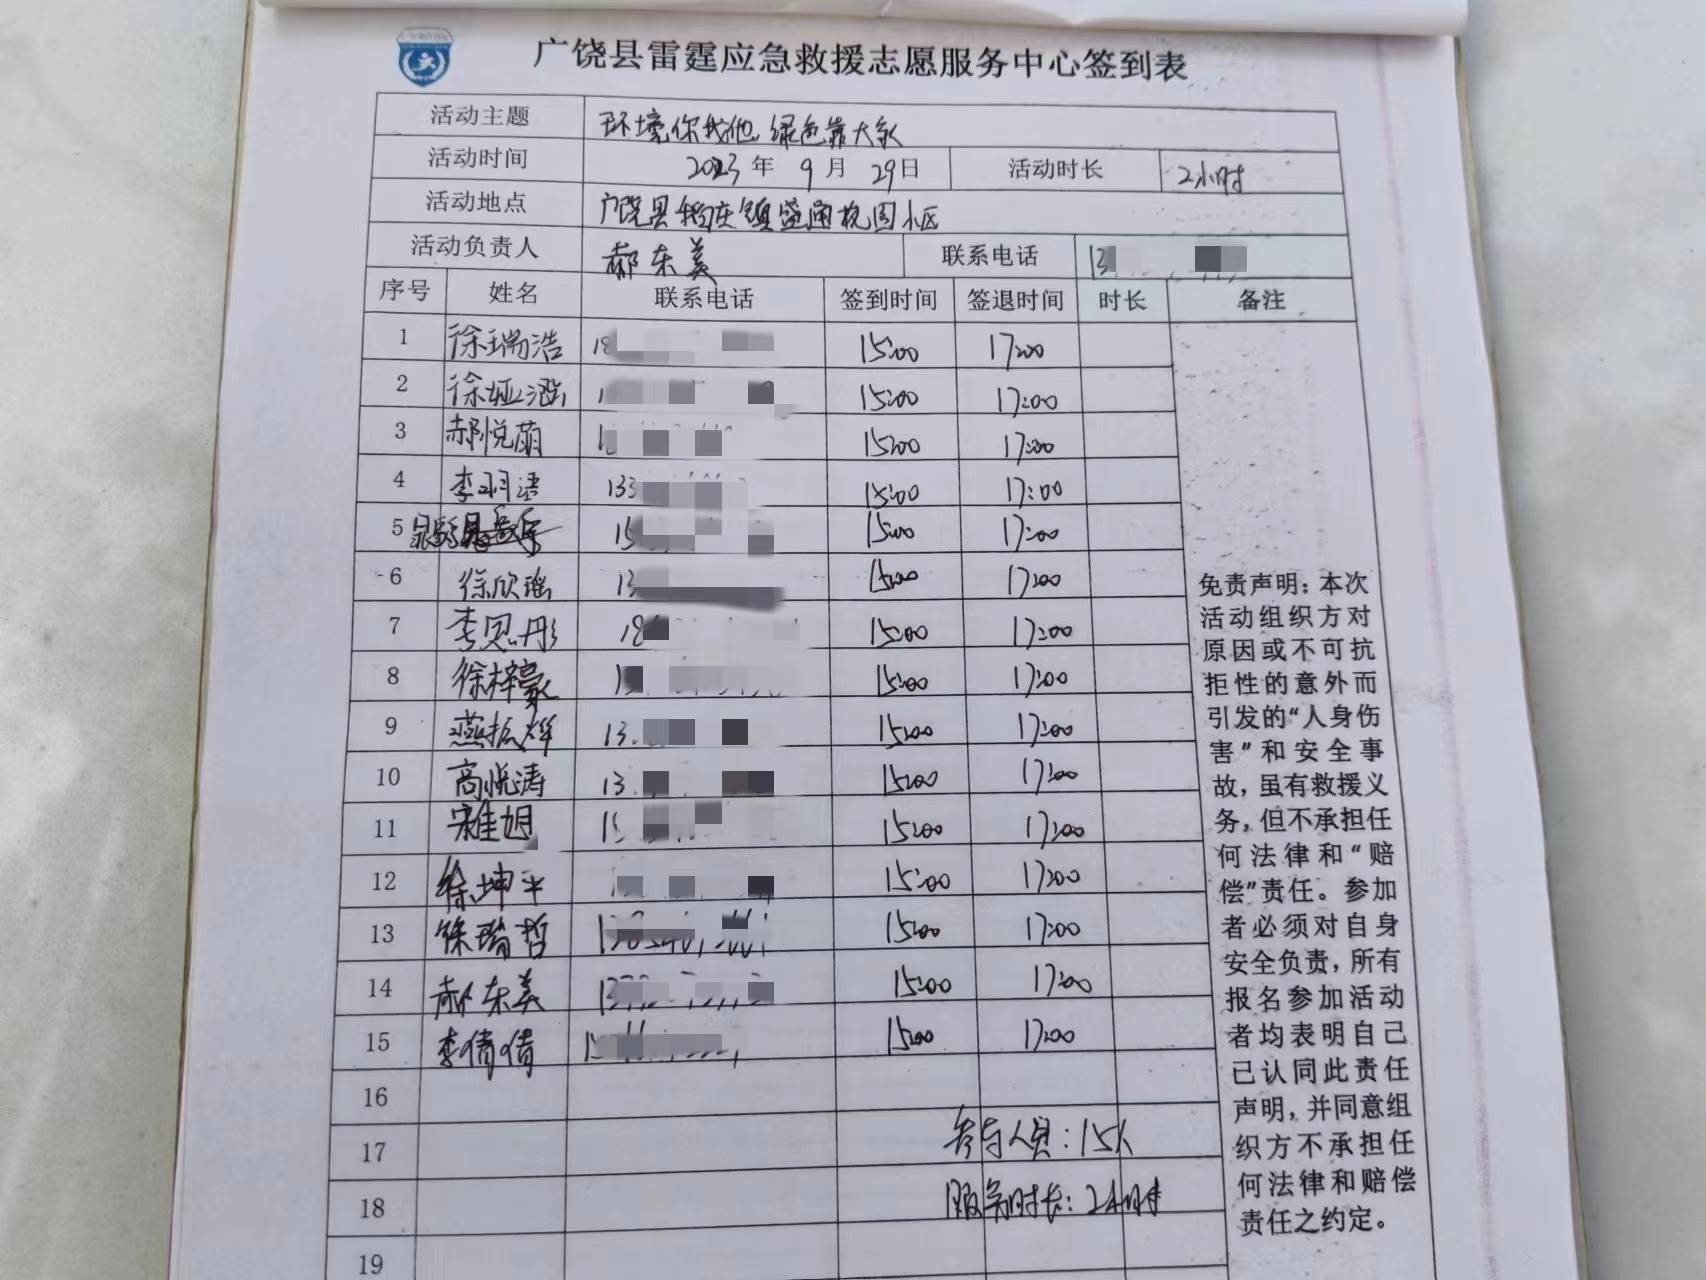 广饶县雷霆应急救援志愿服务中心签到表
活动主题 环境你我他 绿色靠大家
活动时间 2023年 9月 29日 活动时长 2小时
活动地点 广饶县稻庄镇盛通悦园小区
活动负责人 郝东美 联系电话 13
序号 姓名 联系电话 签到时间 签退时间 时长 备注
1 徐瑞浩 18 15:00 17:00
2 徐娅涵 1 15:00 17:00
3 郝悦萌 1 15:00 17:00
4 李羽语 133 15:00 17:00
5 15 15:00 17:00
6 徐欣瑶 13 15:00 17:00
7 李思彤 18 15:00 17:00
8 徐梓豪 13 15:00 17:00
9 燕振烨 13 15:00 17:00
10 高悦涛 13 15:00 17:00
11 宋佳旭 15:00 17:00
12 徐坤平 15:00 17:00
13 徐瑞哲 15:00 17:00
14 郝东美 15:00 17:00
15 李倩倩 15:00 17:00
16
17 参与人员:15人
18 服务时长:2小时
19
免责声明:本次
活动组织方对
原因或不可抗
拒性的意外而
引发的“人身伤
害”和安全事
故,虽有救援义
务,但不承担任
何法律和“赔
偿”责任。参加
者必须对自身
安全负责,所有
报名参加活动
者均表明自己
已认同此责任
声明,并同意组
织方不承担任
何法律和赔偿
责任之约定。